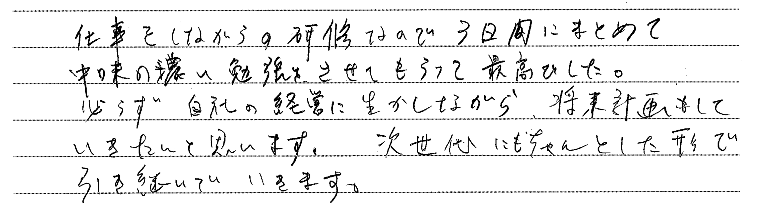 仕事をしながらの研修なので3日間にまとめて
中味の濃い勉強をさせてもらって最高でした。
必らず自社の経営に生かしながら、将来計画をして
いきたいと思います。 次世代にもちゃんとした形で
引き継いでいきます。